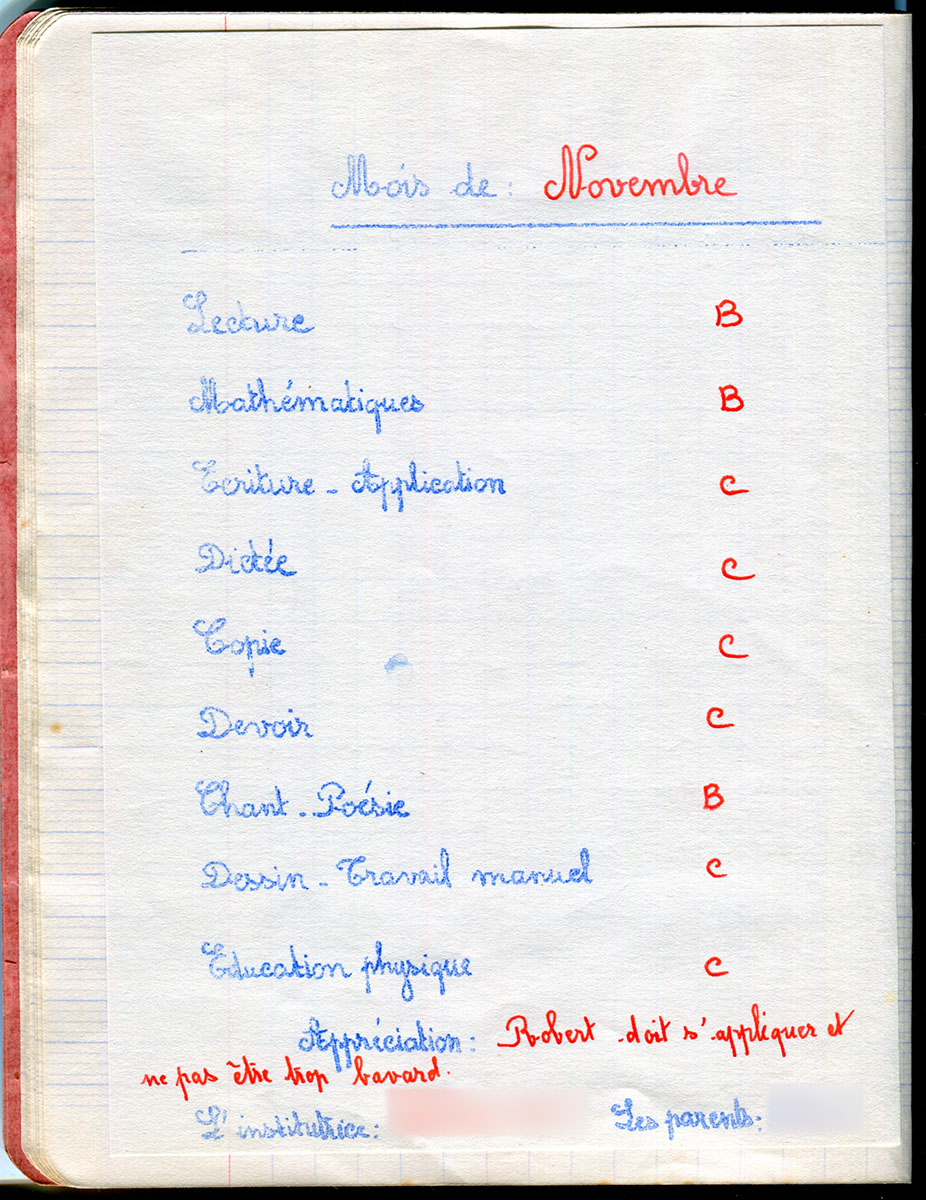 Mois de : Novembre
Lecture B
Mathématiques B
Ecriture - Application C
Dictée C
Copie C
Devoir C
Chant - Poésie B
Dessin - Travail manuel C
Education physique C
Appréciation : Robert doit s'appliquer et
ne pas être trop bavard.
L'institutrice : Les parents :